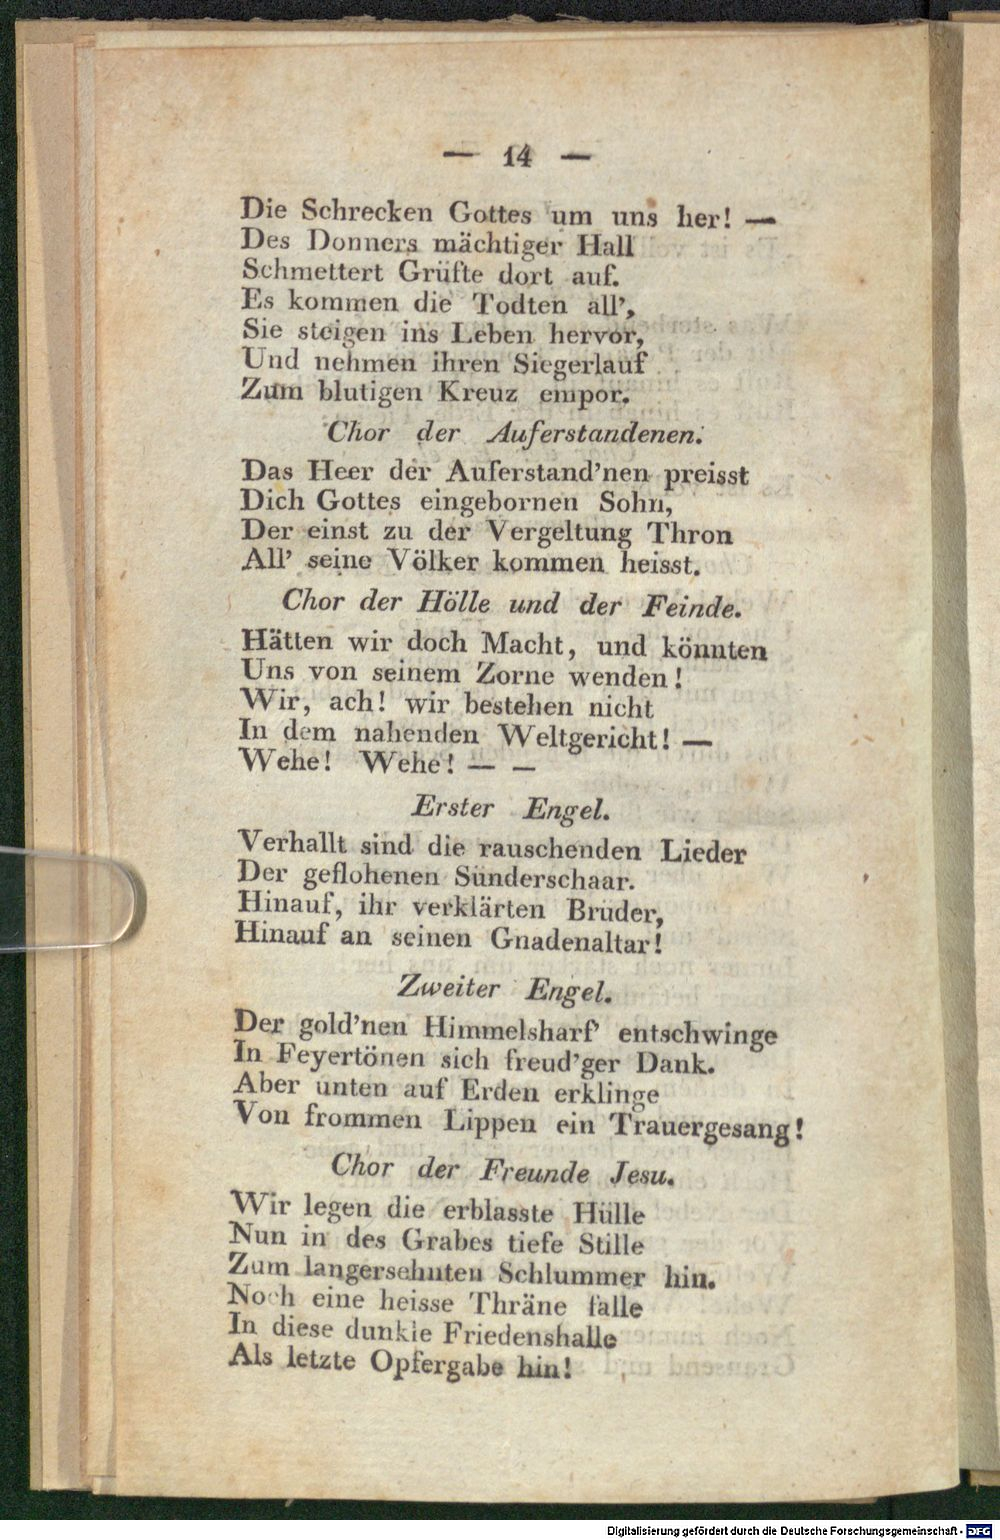 — 14 —
Die Schrecken Gottes um uns her! —
Des Donners mächtiger Hall
Schmettert Grüfte dort auf.
Es kommen die Todten all’,
Sie steigen ins Leben hervor,
Und nehmen ihren Siegerlauf
Zum blutigen Kreuz empor.
Chor der Auferstandenen.
Das Heer der Auferstand’nen preisst
Dich Gottes eingebornen Sohn,
Der einst zu der Vergeltung Thron
All’ seine Völker kommen heisst.
Chor der Hölle und der Feinde.
Hätten wir doch Macht, und könnten
Uns von seinem Zorne wenden!
Wir, ach! wir bestehen nicht
In dem nahenden Weltgericht! —
Wehe! Wehe! — —
Erster Engel.
Verhallt sind die rauschenden Lieder
Der geflohenen Sünderschaar.
Hinauf, ihr verklärten Brüder,
Hinauf an seinen Gnadenaltar!
Zweiter Engel.
Der gold’nen Himmelsharf’ entschwinge
In Feyertönen sich freud’ger Dank.
Aber unten auf Erden erklinge
Von frommen Lippen ein Trauergesang!
Chor der Freunde Jesu.
Wir legen die erblasste Hülle
Nun in des Grabes tiefe Stille
Zum langersehnten Schlummer hin.
Noch eine heisse Thräne falle
In diese dunkle Friedenshalle
Als letzte Opfergabe hin!
Digitalisierung gefördert durch die Deutsche Forschungsgemeinschaft - DFG